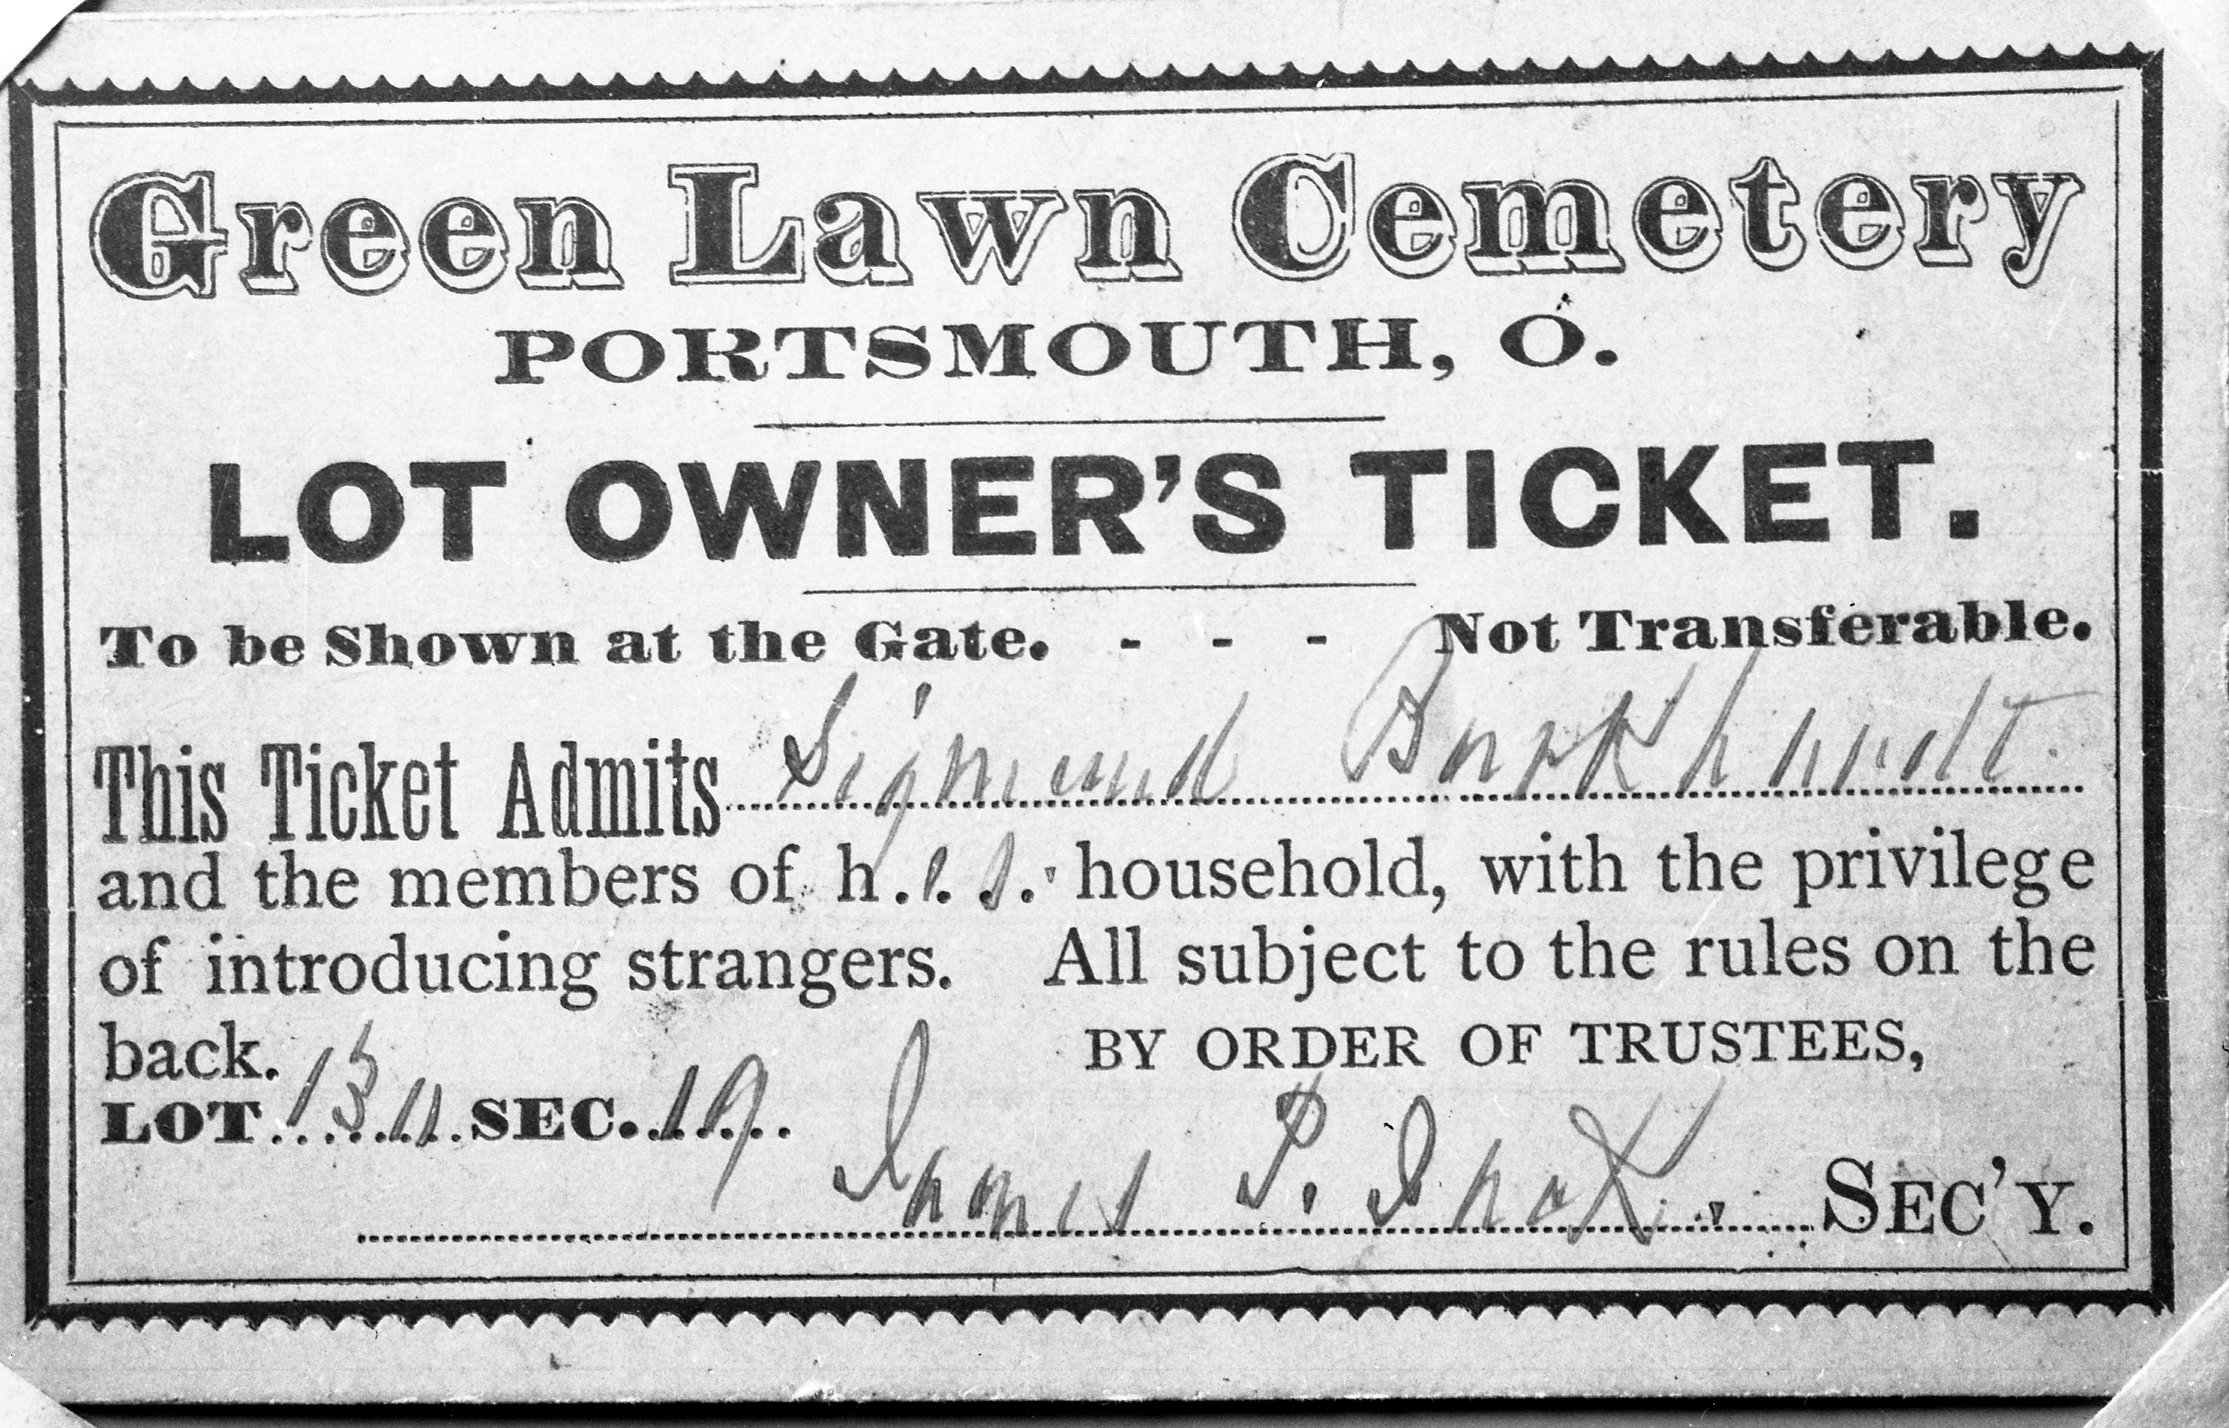 Green Lawn Cemetery
PORTSMOUTH, O.
LOT OWNER'S TICKET.
To be Shown at the Gate. - - - Not Transferable.
This Ticket Admits Sigmund Burkhardt
and the members of h.i.s. household, with the privilege
of introducing strangers. All subject to the rules on the
back. BY ORDER OF TRUSTEES,
LOT SEC. 19
James P. SEC'Y.